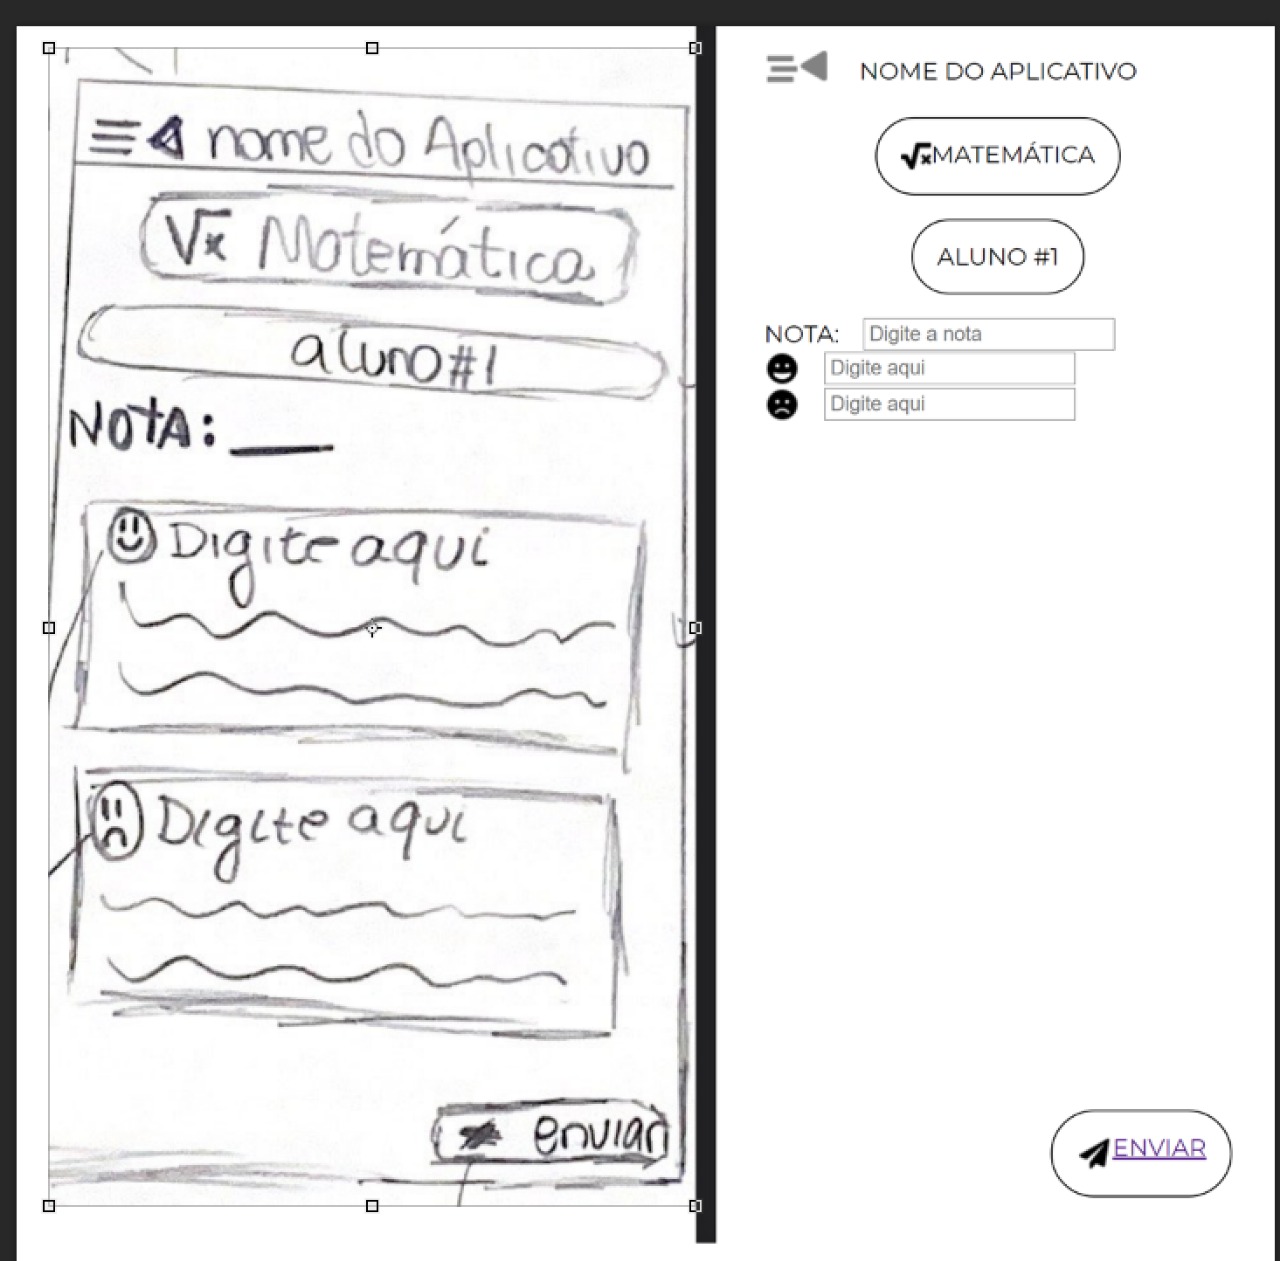 nome do Aplicativo
√x Matemática
aluno#1
NOTA: ____
Digite aqui
Digite aqui
enviar
NOME DO APLICATIVO
√x MATEMÁTICA
ALUNO #1
NOTA: Digite a nota
Digite aqui
Digite aqui
ENVIAR